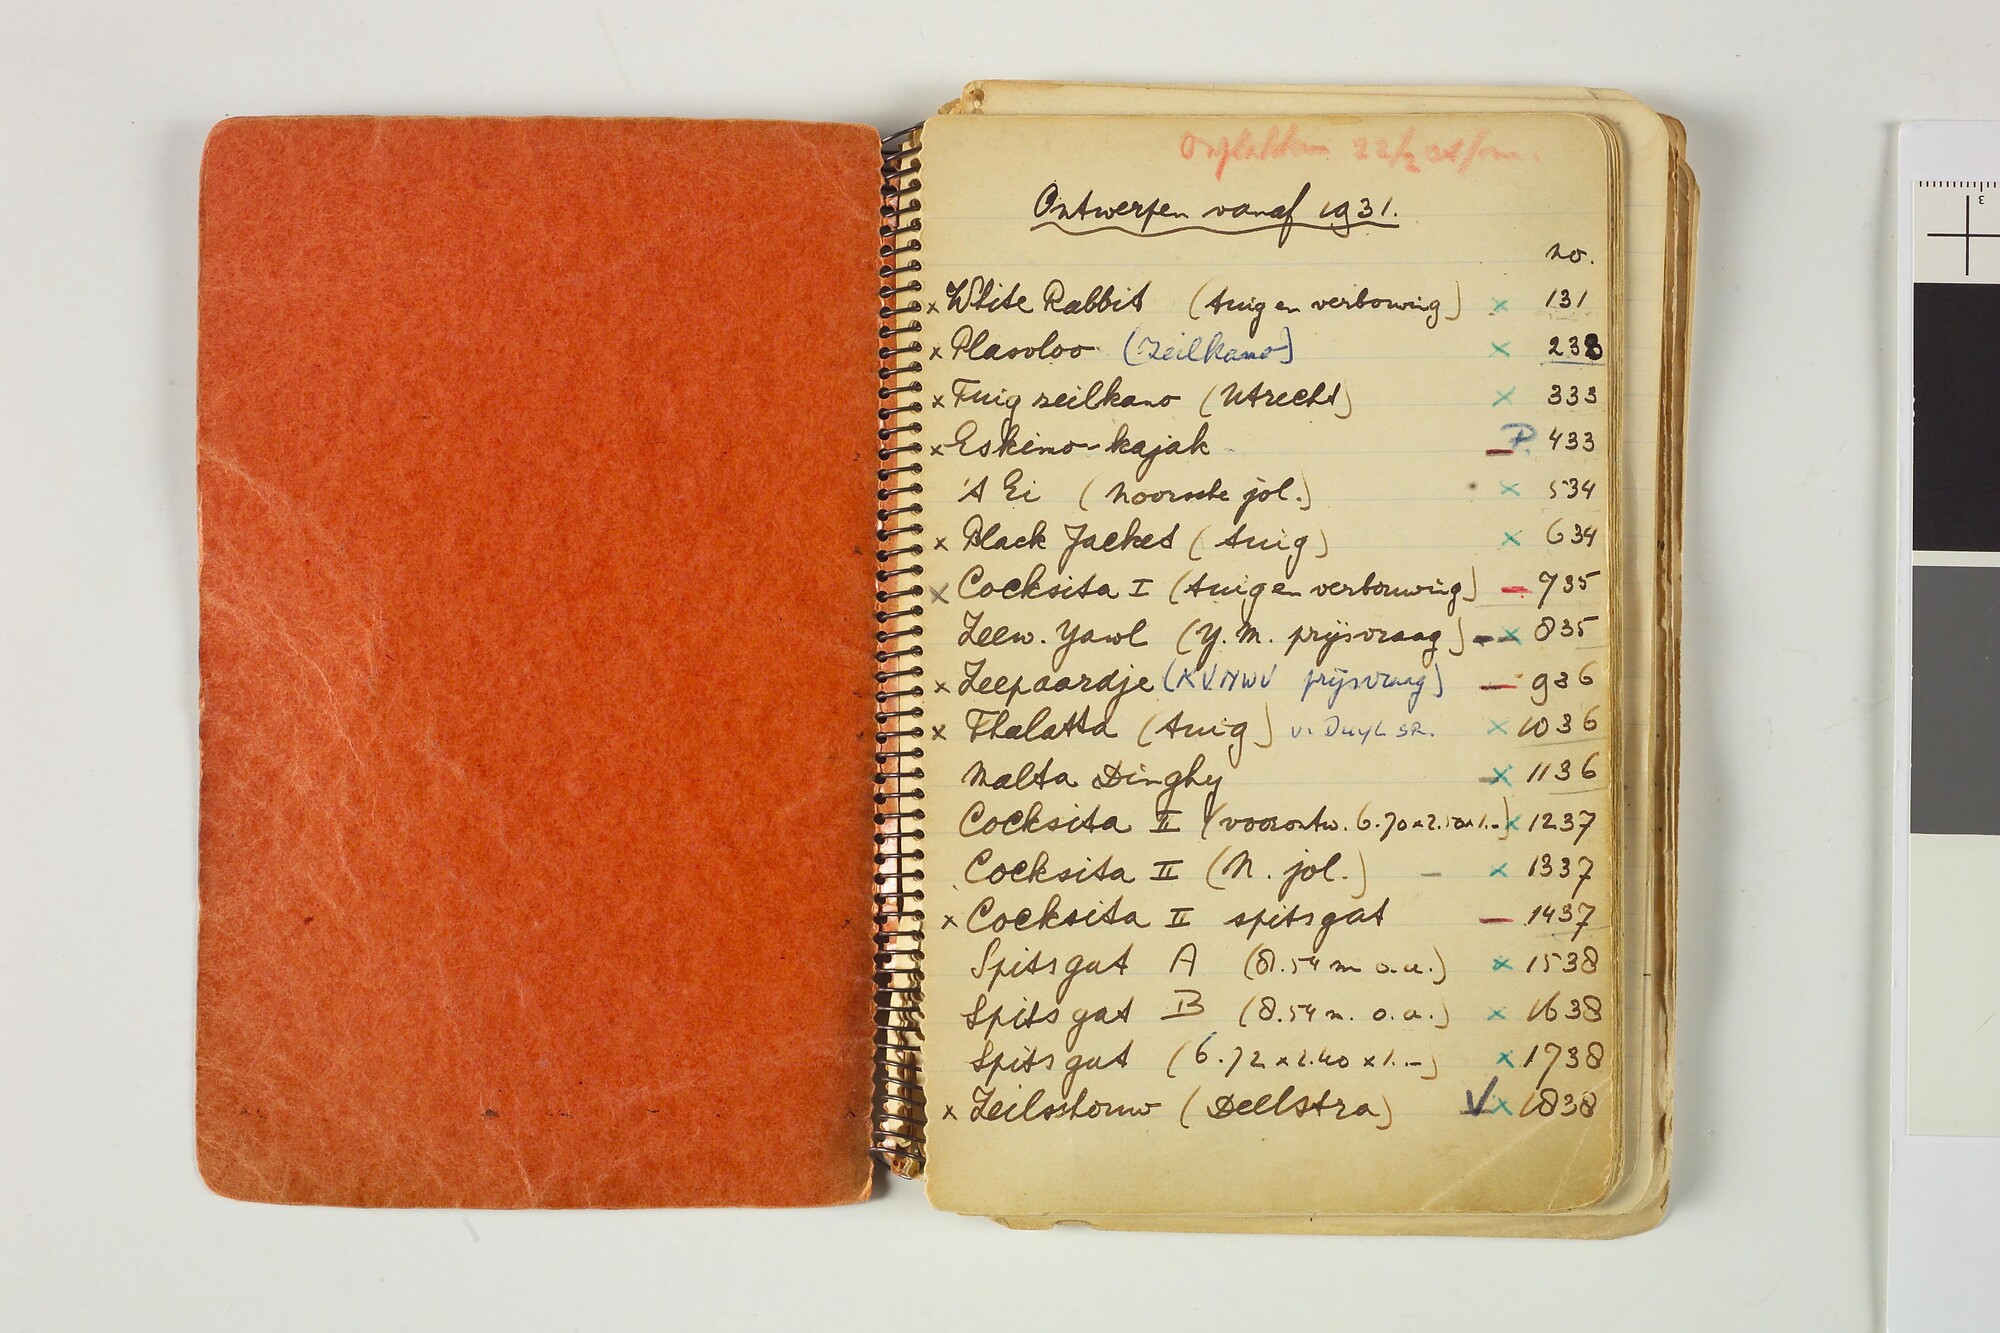 Ontwerpen vanaf 1931.
no.
x White Rabbit (tuig en verbouwing) x 131
x Plasoloo (Zeilkano) x 238
x Tuig zeilkano (Utrecht) x 333
x Eskimo-kajak — P. 433
't Ei (Noorsche jol.) x 534
x Black Jacket (tuig) x 634
x Cocksita I (tuig en verbouwing) — 735
Zeew. Yawl (Y.M. prijsvraag) — x 835
x Zeepaardje (KVNWV prijsvraag) — 936
x Thalatta (tuig) v. Duyl SR. x 1036
Malta Dinghy x 1136
Cocksita II (voorontw. 6.70 x 2.50 x 1.-) x 1237
Cocksita II (N. jol.) – x 1337
x Cocksita II spitsgat — 1437
Spitsgat A (8.54 m o.a.) x 1538
Spitsgat B (8.54 m. o.a.) x 1638
Spitsgat (6.72 x 2.40 x 1.-) x 1738
x Zeilschouw (Deelstra) V x 1838